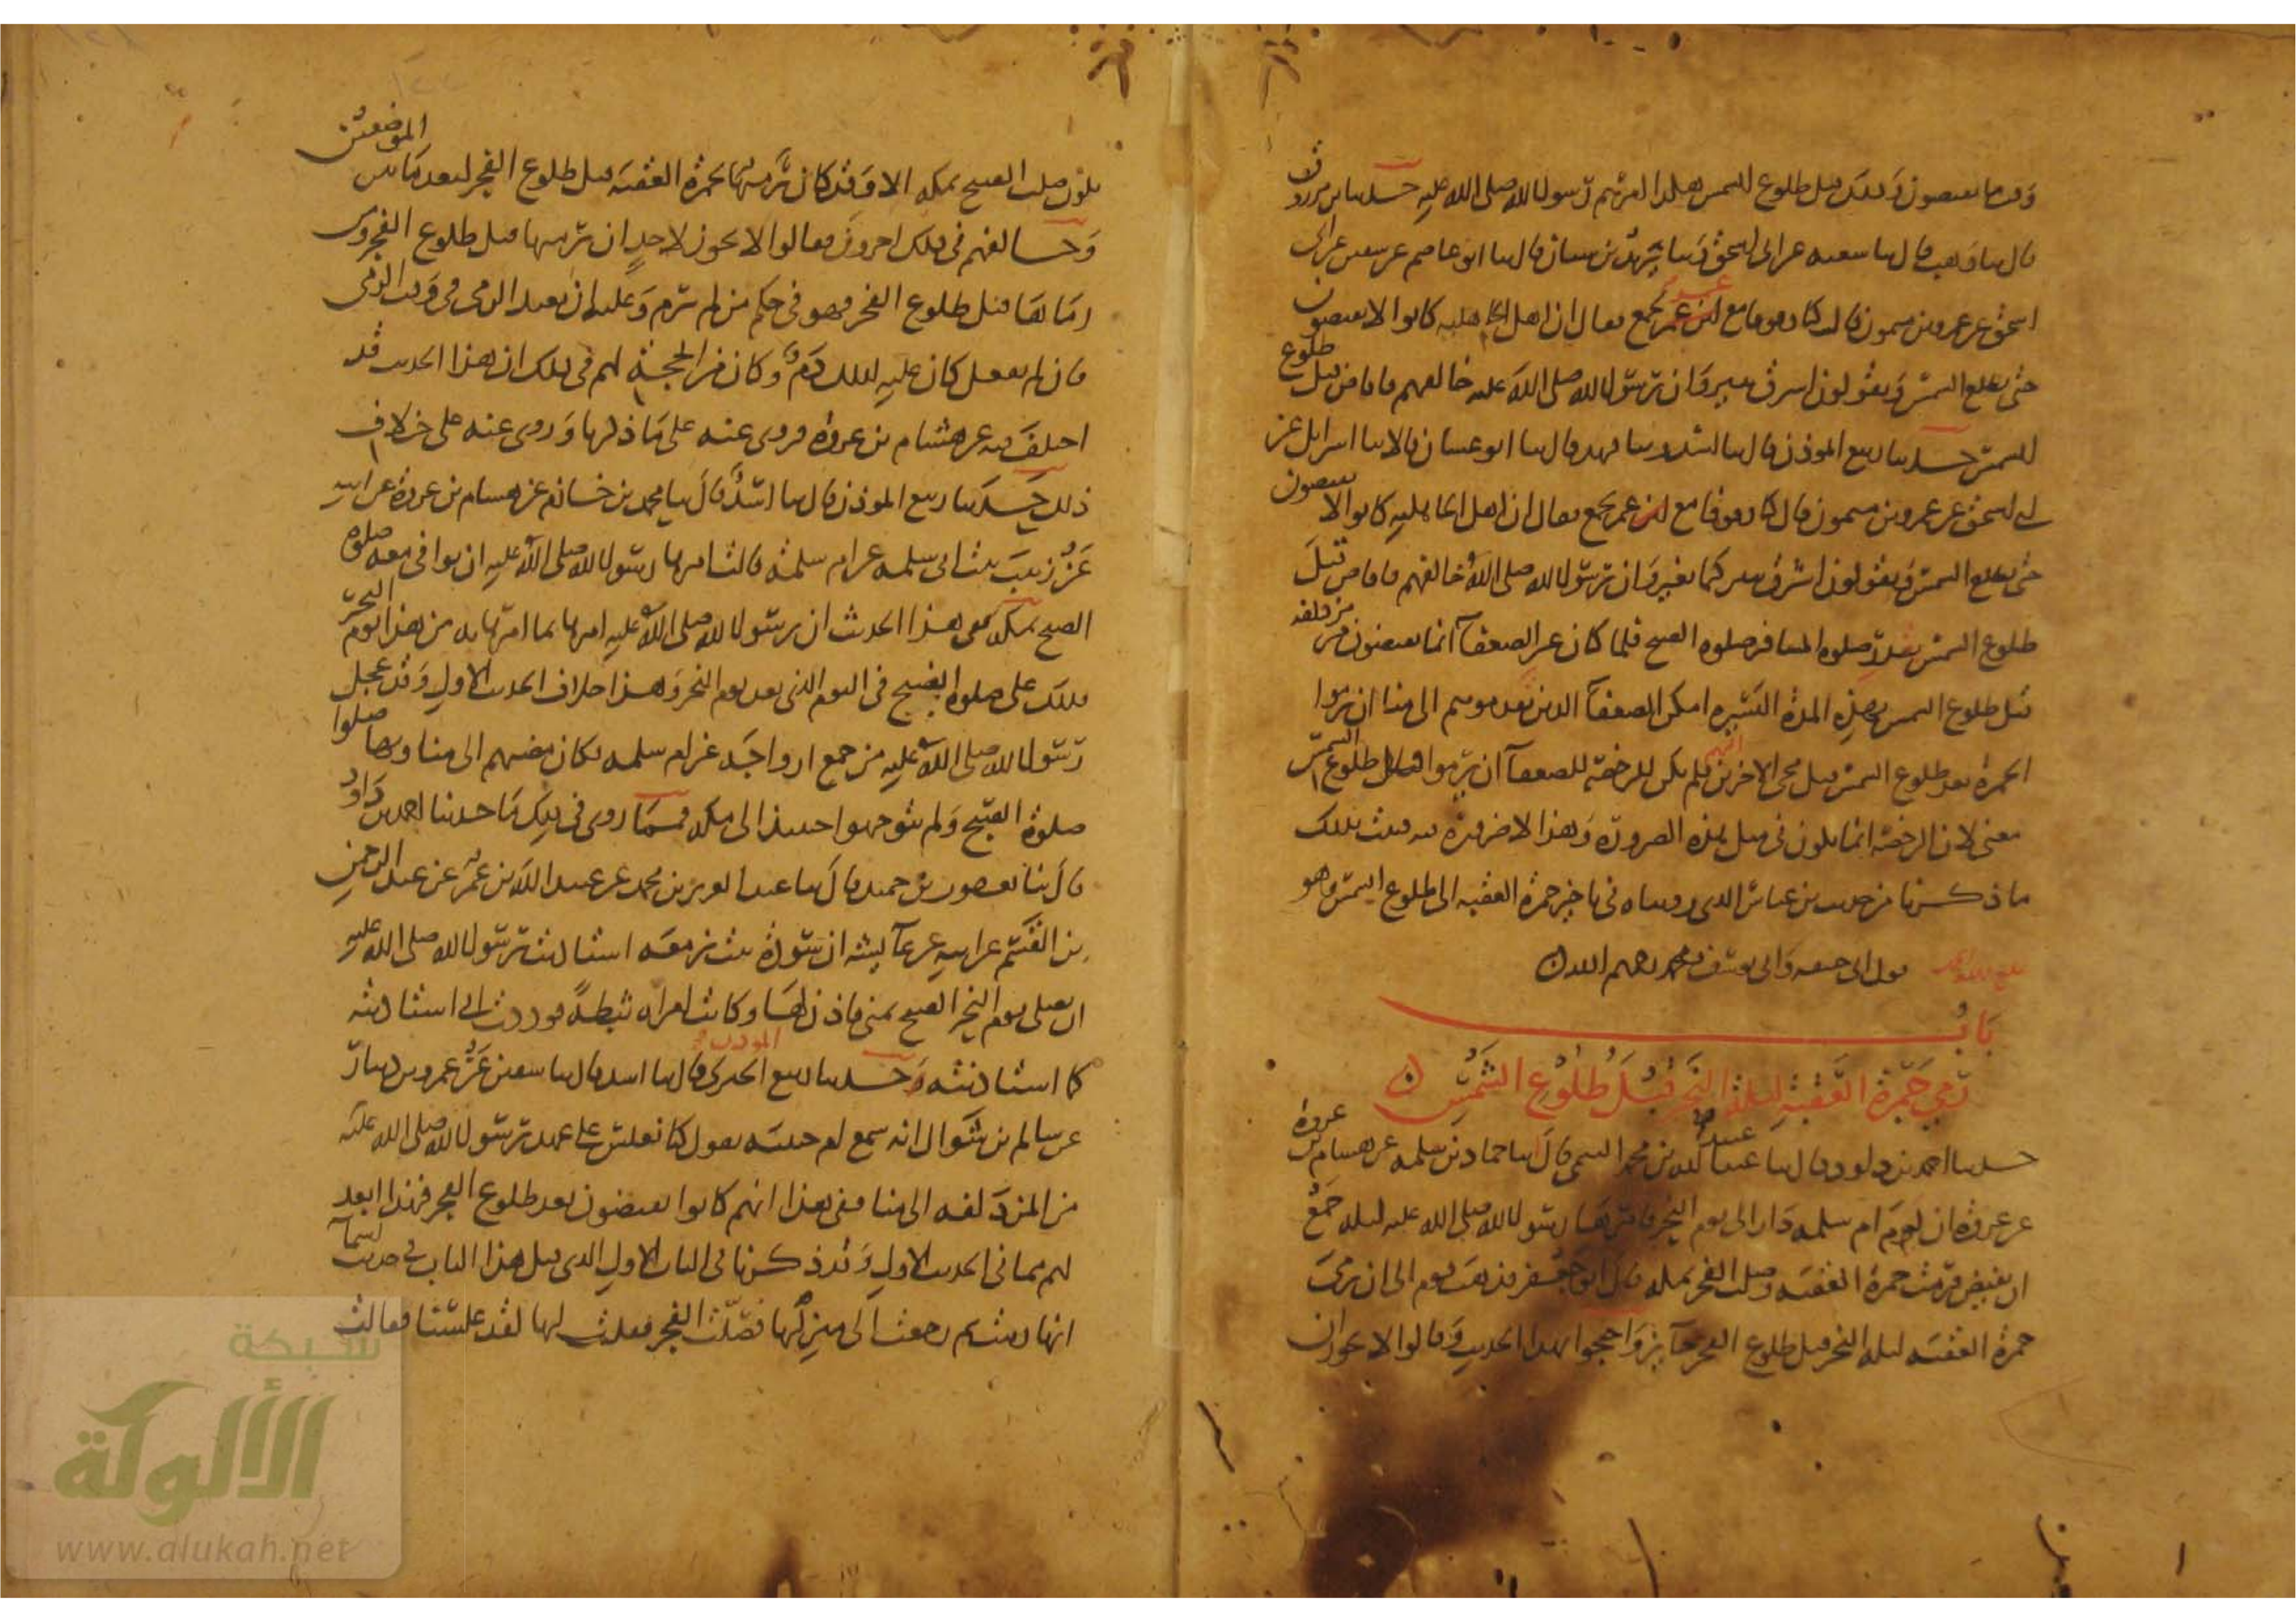 وقت ما يفيضون وذلك قبل طلوع الشمس هكذا امرهم رسول الله صلى الله عليه حدثنا ابن مرزوق
قال ثنا وهب قال ثنا شعبه عن ابى اسحق وثنا يزيد بن سنان قال ثنا ابو عاصم عن سفين عن ابى
اسحق عن عمرو بن ميمون قال كنا وقوفا مع عمر بجمع فقال ان اهل الجاهليه كانوا لا يفيضون
حتى تطلع الشمس ويقولون اشرق ثبير وان رسول الله صلى الله عليه خالفهم فافاض قبل طلوع
الشمس حدثنا ربيع الموذن قال ثنا اسد وثنا فهد قال ثنا ابو غسان قالا ثنا اسرايل عن
ابى اسحق عن عمرو بن ميمون قال كنا وقوفا مع عمر بجمع فقال ان اهل الجاهليه كانوا لا يفيضون
حتى تطلع الشمس ويقولون اشرق ثبير كيما نغير وان رسول الله صلى الله خالفهم فافاض قبل
طلوع الشمس بقدر صلوه المسافر صلوه الصبح فلما كان غير الضعفا انما يفيضون من مزدلفه
قبل طلوع الشمس بهذه المدة اليسيره امكن الضعفا الذين تقدموهم الى منا ان يرموا
الجمرة بعد طلوع الشمس قبل مجى الاخرين اليهم فلم يكن للرخصة للضعفا ان يرموا قبل طلوع الشمس
معنى لان الرخصة انما تكون فى مثل هذه الضرورة وهذا لا ضرورة فيه فثبت بذلك
ما ذكرنا من حديث بن عباس الذى رويناه فى تاخير جمرة العقبه الى طلوع الشمس وهو
قول ابى حنيفه وابى يوسف ومحمد رحمهم الله
باب
رمى جمرة العقبة ليلة النحر قبل طلوع الشمس
حدثنا احمد بن داود قال ثنا عبيد الله بن محمد التيمى قال ثنا حماد بن سلمه عن هشام بن عروة
عن عروة ان يوم ام سلمه دار الى يوم النحر فامرها رسول الله صلى الله عليه ليله جمع
ان تفيض فرمت جمرة العقبه وصلت الفجر بمكه قال ابو جعفر فذهب قوم الى ان رمى
جمرة العقبه ليله النحر قبل طلوع الفجر جايز واحتجوا بهذا الحديث وقالوا لا يجوز ان
تكون صلت الصبح بمكه الا وقد كان رميها جمرة العقبه قبل طلوع الفجر لبعد ما بين الموضعين
وخالفهم فى ذلك اخرون فقالوا لا يجوز لاحد ان يرميها قبل طلوع الفجر ومن
رماها قبل طلوع الفجر فهو فى حكم من لم يرم وعليه ان يعيد الرمى فى وقت الرمى
فان لم يفعل كان عليه لذلك دم وكان من الحجة لهم فى ذلك ان هذا الحديث قد
اختلف فيه عن هشام بن عروه فروى عنه على ما ذكرنا وروى عنه على خلاف
ذلك حدثنا ربيع الموذن قال ثنا اسد قال ثنا محمد بن خازم عن هشام بن عروة عن ابيه
عن زينب بنت ابى سلمه عن ام سلمة قالت امرها رسول الله صلى الله عليه ان توافى معه صلوه
الصبح بمكه ففى هذا الحديث ان رسول الله صلى الله عليه امرها بما امرها به من هذا يوم النحر
فذلك على صلوه الصبح فى اليوم الذى بعد يوم النحر وهذا خلاف الحديث الاول وقد عجل
رسول الله صلى الله عليه من جمع ازواجه غير ام سلمه فكان مضيهم الى منا وبها صلوا
صلوة الصبح ولم يتوجهوا حينئذ الى مكه فمما روى فى ذلك ما حدثنا احمد بن داود
قال ثنا يعقوب بن حميد قال ثنا عبد العزيز بن محمد عن عبيد الله بن عمر عن عبد الرحمن
بن القسم عن ابيه عن عايشه ان سودة بنت زمعه استاذنت رسول الله صلى الله عليه
ان تصلى يوم النحر الصبح بمنى فاذن لها وكانت امراه ثبطة فوددت انى استاذنته
كما استاذنته وحدثنا ربيع الموذن قال ثنا اسد قال ثنا سفين عن عمرو بن دينار
عن سالم بن شوال انه سمع ام حبيبه تقول كنا نغلس على عهد رسول الله صلى الله عليه
من المزدلفه الى منا ففى هذا انهم كانوا يفيضون بعد طلوع الفجر فهذا ابعد
لهم مما فى الحديث الاول وقد ذكرنا فى الباب الاول الذى قبل هذا الباب فى حديث اسما
انها رمت ثم رجعت الى منزلها فصلت الفجر فقلت لها لقد غلسنا فقالت
شبكة
الألوكة
www.alukah.net